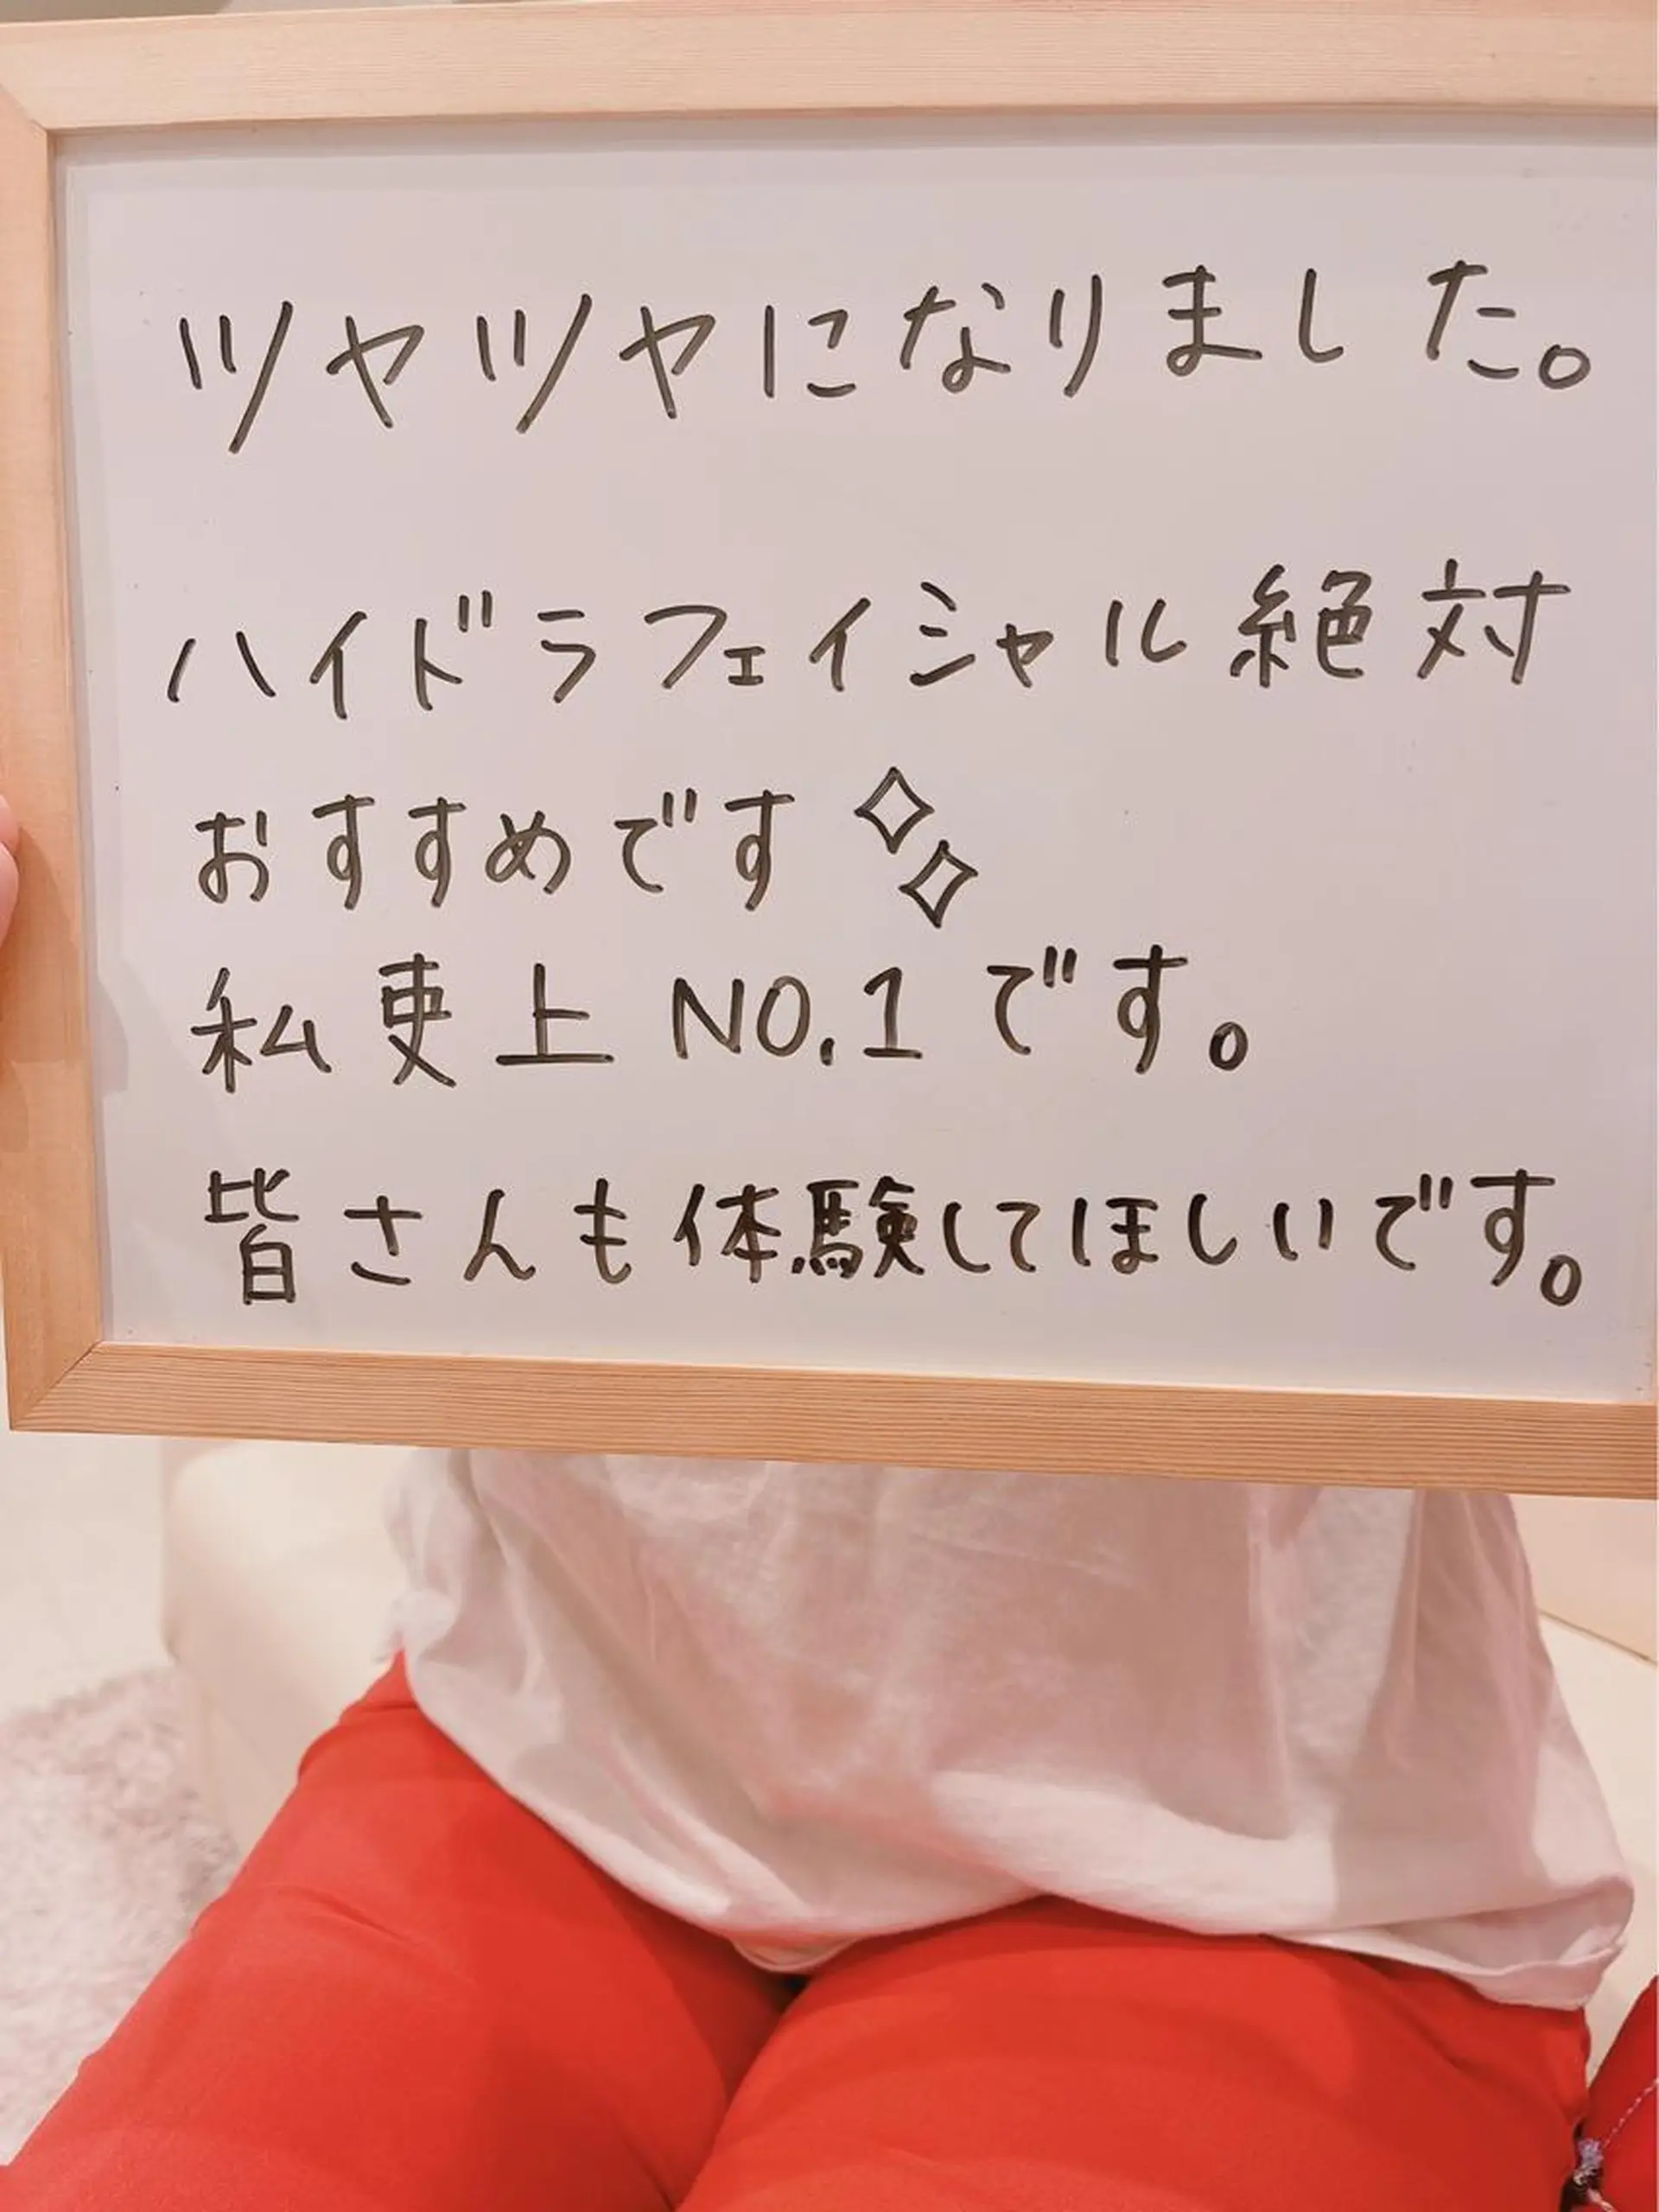 ツヤツヤになりました。
ハイドラフェイシャル絶対
おすすめです
私史上NO.1です。
皆さんも体験してほしいです。